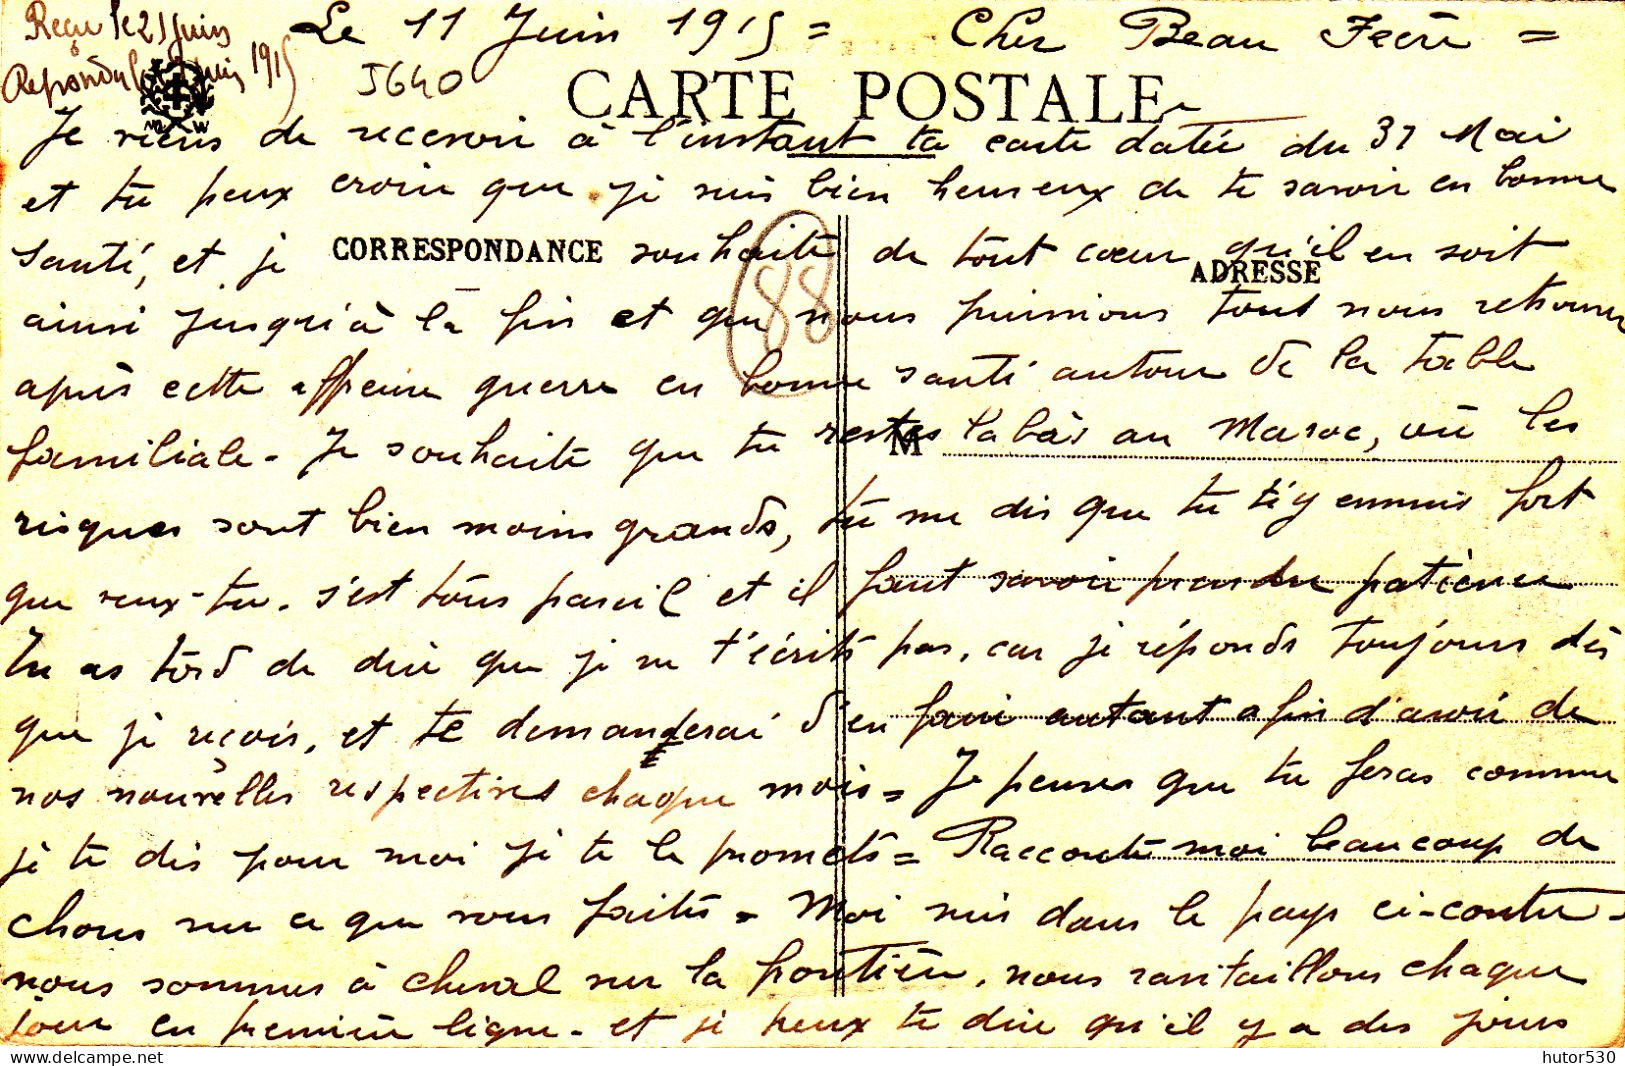 Reçu le 21 juin
Repondu le juin 1915
Le 11 Juin 1915 = Cher Beau Frère =
5640
CARTE POSTALE
Je viens de recevoir à l'instant ta carte datée du 31 Mai
et tu peux croire que je suis bien heureux de te savoir en bonne
santé, et je souhaite de tout coeur qu'il en soit
CORRESPONDANCE
ADRESSE
88
ainsi jusqu'à la fin et que nous puissions tous nous retrouver
après cette affreuse guerre en bonne santé autour de la table
familiale. Je souhaite que tu restes la bàs au Maroc, où les
M
risques sont bien moins grands, tu me dis que tu t'y ennuis fort
que veux-tu. s'est tous pareil et il faut savoir prendre patience
Tu as tord de dire que je ne t'écrits pas, car je réponds toujours dès
que je reçois, et te demanderai d'en faire autant afin d'avoir de
nos nouvelles respectives chaque mois = Je pense que tu feras comme
je te dis pour moi je te le promets = Raconte moi beaucoup de
choses sur ce que vous faites = Moi suis dans le pays ci-contre -
nous sommes à cheval sur la frontière, nous ravitaillons chaque
jour en première ligne - et je peux te dire qu'il y a des jours
MW
hutor530
www.delcampe.net